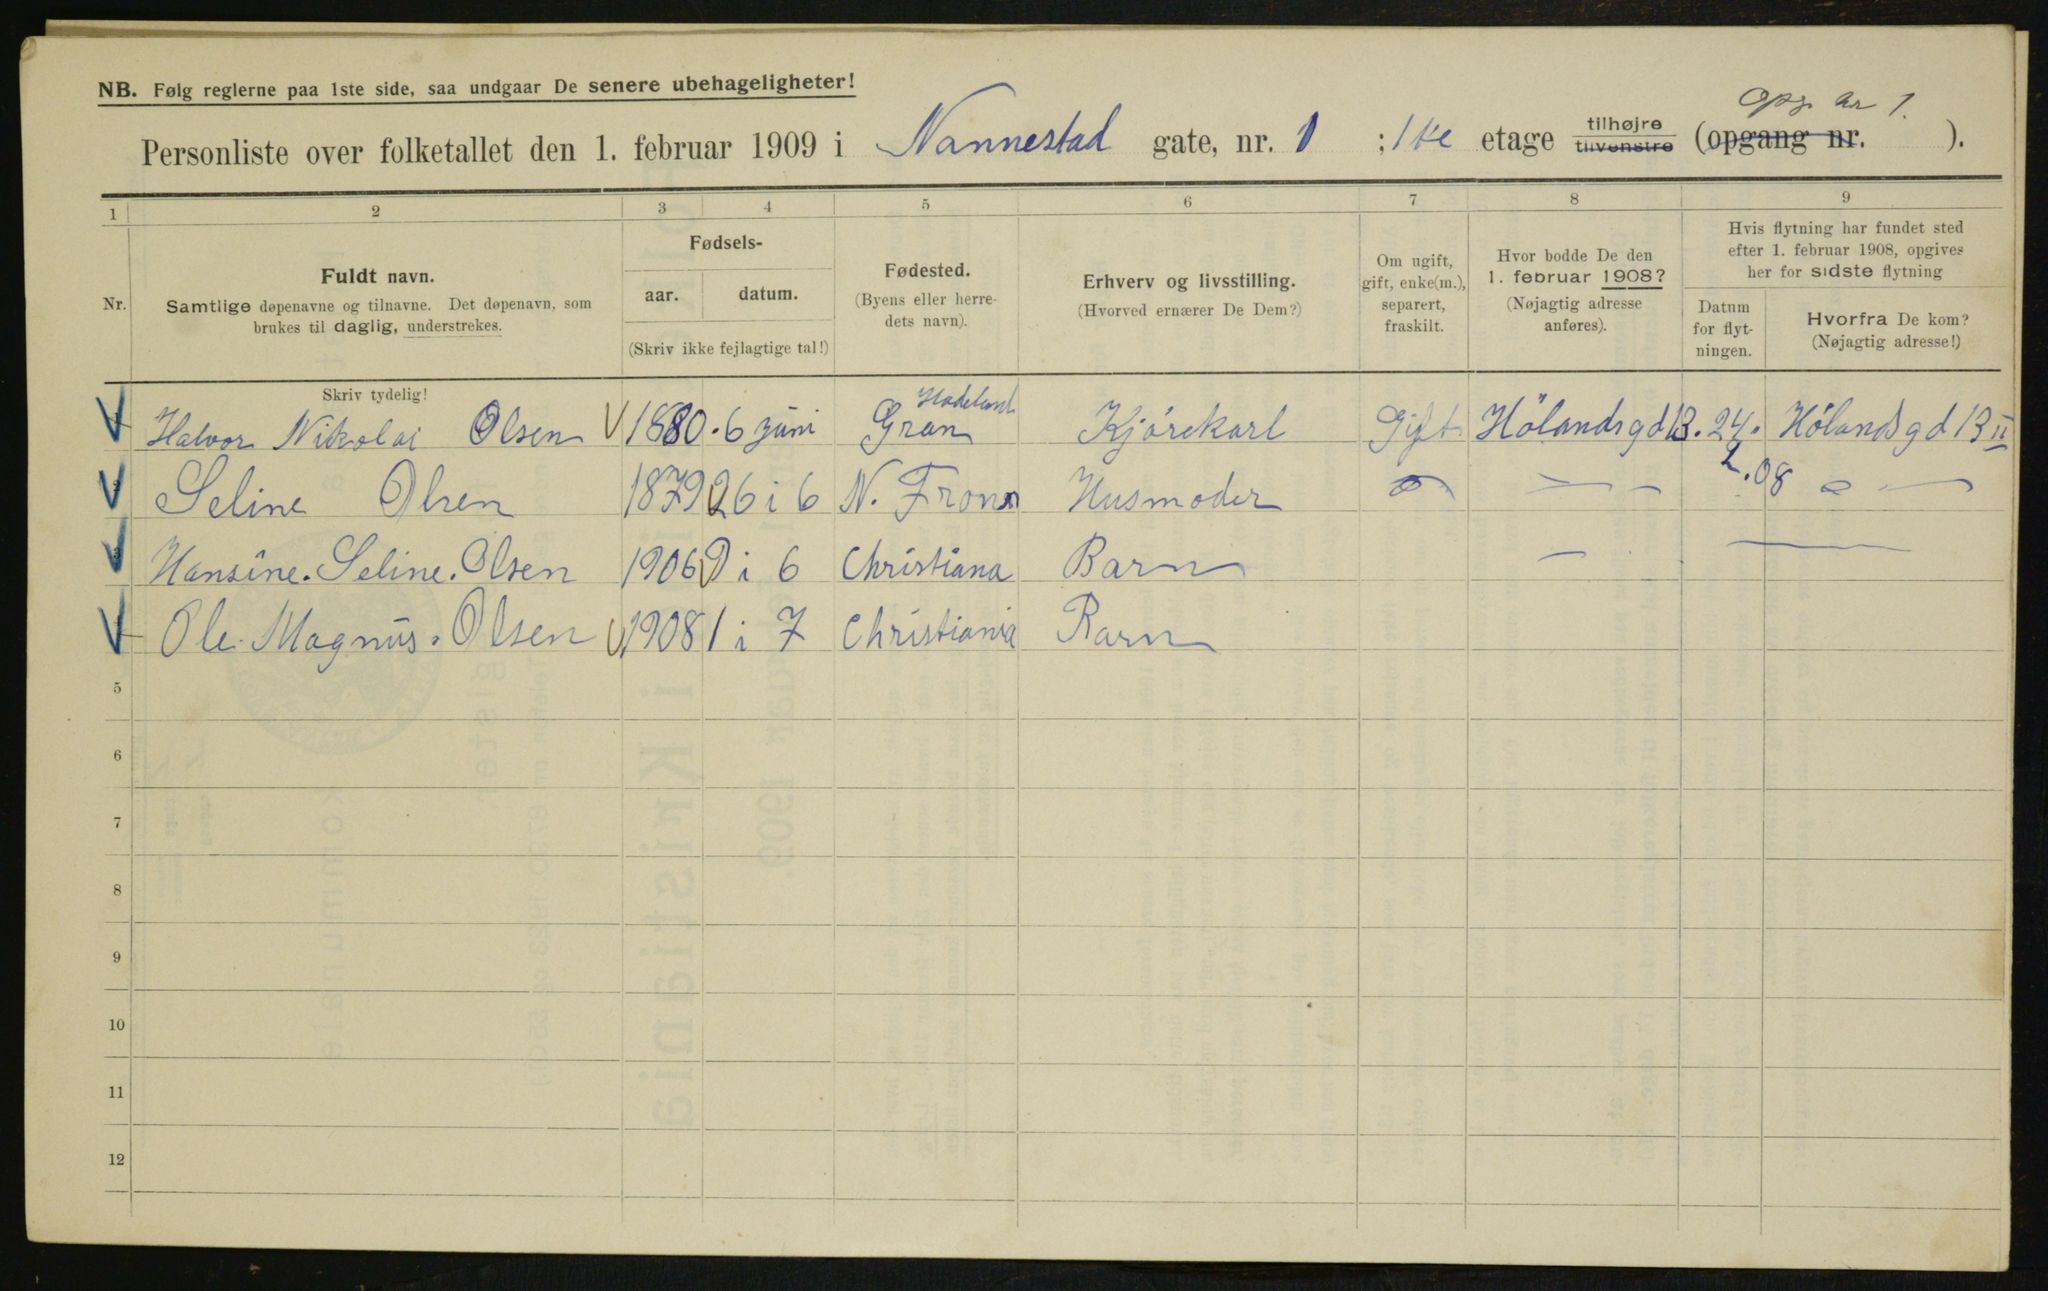 NB. Følg reglerne paa 1ste side, saa undgaar De senere ubehageligheter!
opg. nr 1.
Personliste over folketallet den 1. februar 1909 i Nannestad gate, nr. 1 ; 1ste etage tilhøjre tilvenstre (opgang nr. ).
1 2 3 4 5 6 7 8 9
Nr.
Fuldt navn.
Samtlige døpenavne og tilnavne. Det døpenavn, som
brukes til daglig, understrekes.
Fødsels-
aar. datum.
(Skriv ikke fejlagtige tal!)
Fødested.
(Byens eller herre-
dets navn).
Erhverv og livsstilling.
(Hvorved ernærer De Dem?)
Om ugift,
gift, enke(m.),
separert,
fraskilt.
Hvor bodde De den
1. februar 1908?
(Nøjagtig adresse
anføres).
Hvis flytning har fundet sted
efter 1. februar 1908, opgives
her for sidste flytning
Datum
for flyt-
ningen.
Hvorfra De kom?
(Nøjagtig adresse!)
Skriv tydelig!
1 Halvor Nikolai Olsen 1880 . 6 juni Gran Hadeland Kjörekarl Gift Hölandsgd 13 . 24. Hölandsgd 13 II
2 Seline Olsen 1879 26 i 6 N. Fron Husmoder — — 2.08 —
3 Hansine. Seline. Olsen 1906 9 i 6 Christiana Barn — —
4 Ole. Magnus. Olsen 1908 1 i 7 Christiania Barn
5
6
7
8
9
10
11
12